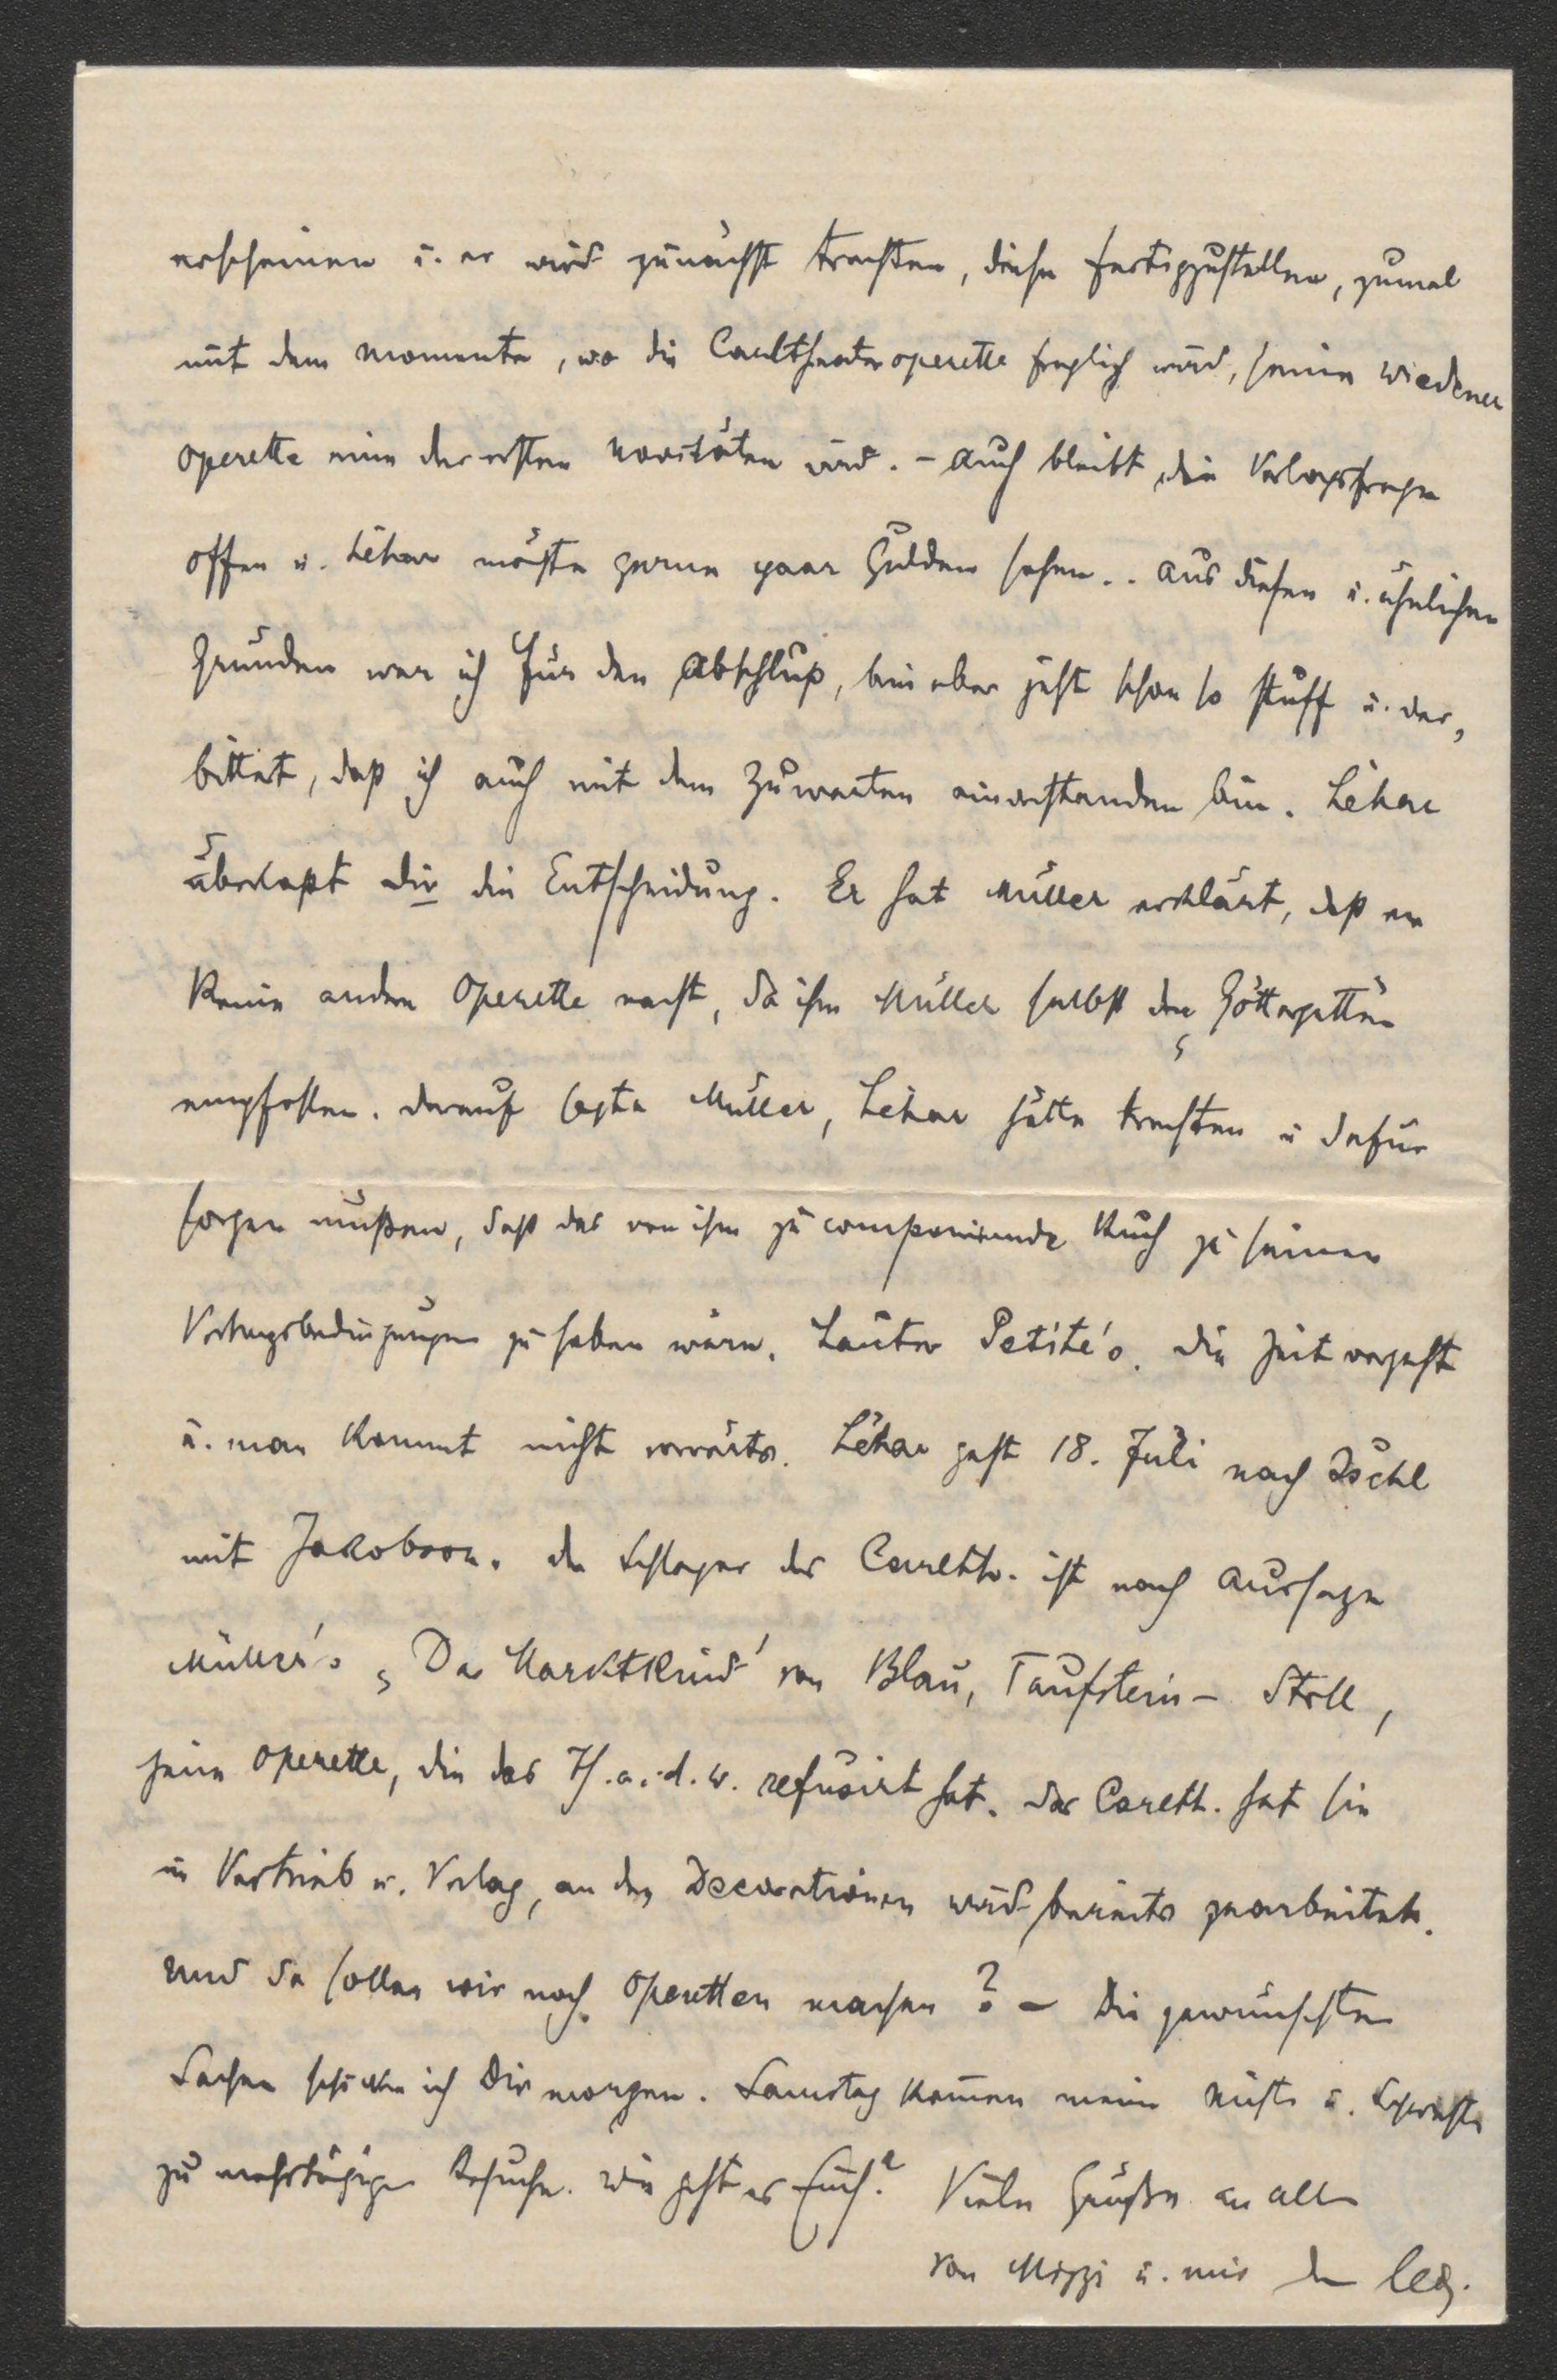 erscheinen u. er wird zunächst trachten, diese fertigzustellen, zumal
mit dem Momente, wo die Carltheateroperette fraglich wird, seine Wiedener
Operette eine der ersten Novitäten wird. – Auch bleibt die Verlagsfrage
offen u. Léhar möchte gerne paar Gulden sehen.. Aus diesen u. ähnlichen
Gründen war ich für den Abschluß, bin aber jetzt schon so stuff u. ver„
bittert, daß ich auch mit dem Zuwarten einverstanden bin. Léhar
überlaßt Dir die Entscheidung. Er hat Müller erklärt, daß er
keine andere Operette macht, da ihm Müller selbst den Göttergatten
empfohlen. Darauf sagte Müller, Léhar hätte trachten u dafür
sorgen müßen, daß das von ihm zu componirende Buch zu seinen
Vertragsbedingungen zu haben wäre. Lauter Petite's. Die Zeit vergeht
u. man kommt nicht vorwärts. Léhar geht 18. Juli nach Ischl
mit Jakobson. Der Schlager des Carlth. ist nach Aussage
Müller's „Das Marktkind" von Blau, Taufstein – Stoll,
jene Operette, die das Th. a. d. W. refüsirt hat. Das Carlth. hat sie
in Vertrieb u. Verlag, an den Decorationen wird bereits gearbeitet.
Und da sollen wir noch Operetten machen? – Die gewünschten
Sachen schicke ich Dir morgen. Samstag kommen meine u. Schwester
zu mehrtägigem Besuche. Wie geht es Euch? Viele Grüße an alle
von Mizzi u. mir Dein Leo.